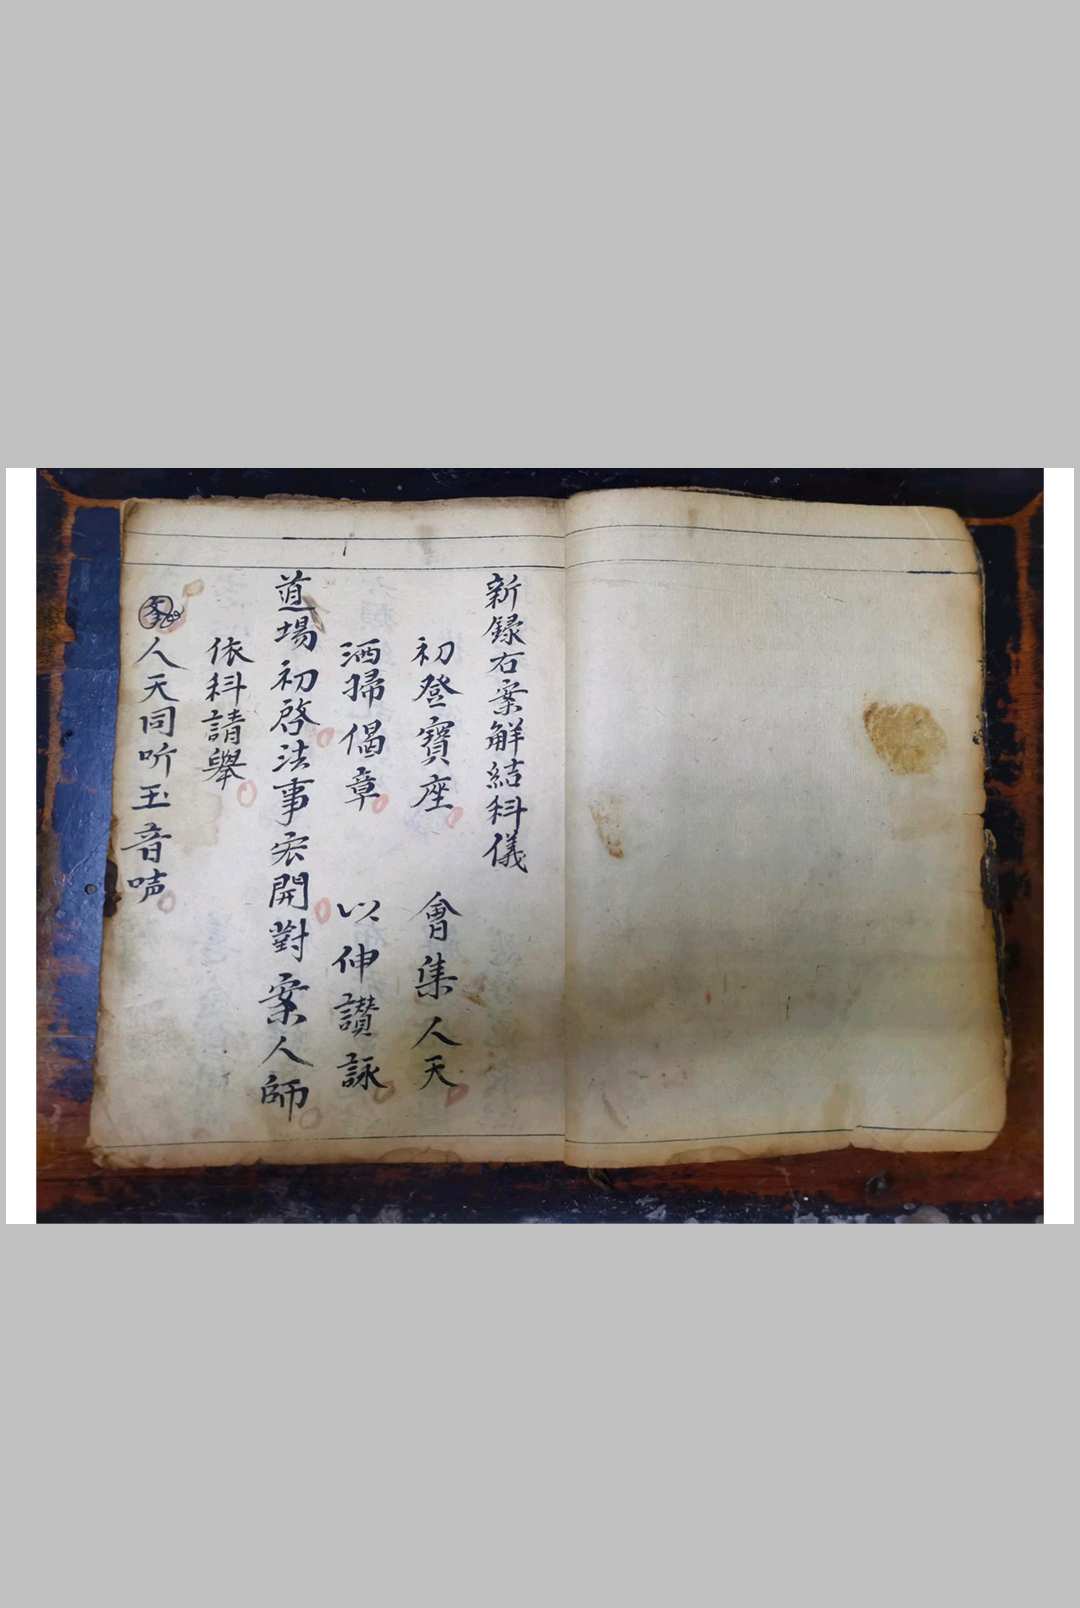 新録右案解結科儀
初登寶座 會集人天
洒掃偈章 以伸讃詠
道場初啓法事宏開對案人師
依科請舉
人天同听玉音唴